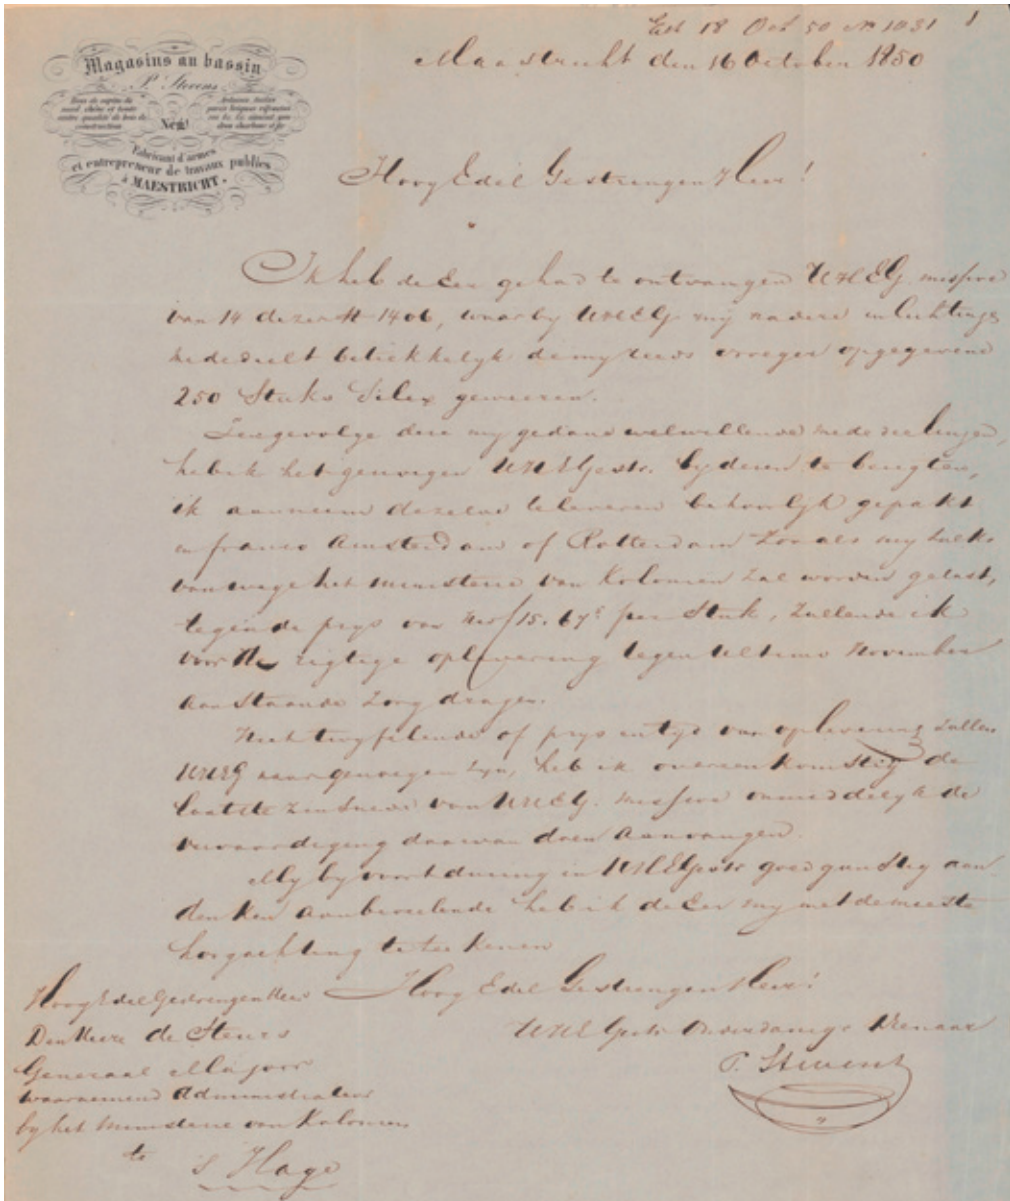 Exh 18 Oct 50 N 1031
Maastricht den 16 October 1850
Magasins au bassin
P. Stevens
Negt
Fabricant d'armes
et entrepreneur de travaux publics
à MAESTRICHT.
Hoog Edel Gestrengen Heer!
Ik heb de Eer gehad te ontvangen UHEG missive
van 14 dezer N 1406, waarby UHEG my nadere inlichtings
mededeelt betrekkelyk de my reeds vroeger opgegevene
250 Stuks Silex geweeren.
Tengevolge dere my gedane welwillende mededeelingen,
heb ik het genoegen UHEGestr. by deren te berigten,
ik aanneem dezelve te leveren behoorlyk gepakt
en franco Amsterdam of Rotterdam zooals my zulks
vanwege het ministerie van Kolonien zal worden gelast,
tegen de prys van Ned f 15.67c per Stuk, zullende ik
voor de rigtige oplevering tegen ultimo November
aanstaande zorg dragen.
Niet twyfelende of prys en tyd van oplevering zullen
UHEG naar genoegen zyn, heb ik overeenkomstig de
laatste zinsnede van UHEG. missive onmiddelyk de
vervaardiging daarvan doen aanvangen.
My by voortduring in UHEGestr goedgunstig aan
denken aanbevelende heb ik de Eer my met de meeste
hoogachting te teekenen
Hoog Edel Gestrengen Heer!
UHEGestr Onderdanige Dienaar
P. Stevens
Hoog Edel Gestrengen Heer
Den Heere de Steurs
Generaal Majoor
waarnemend Administrateur
by het Ministerie van Kolonien
te
s Hage